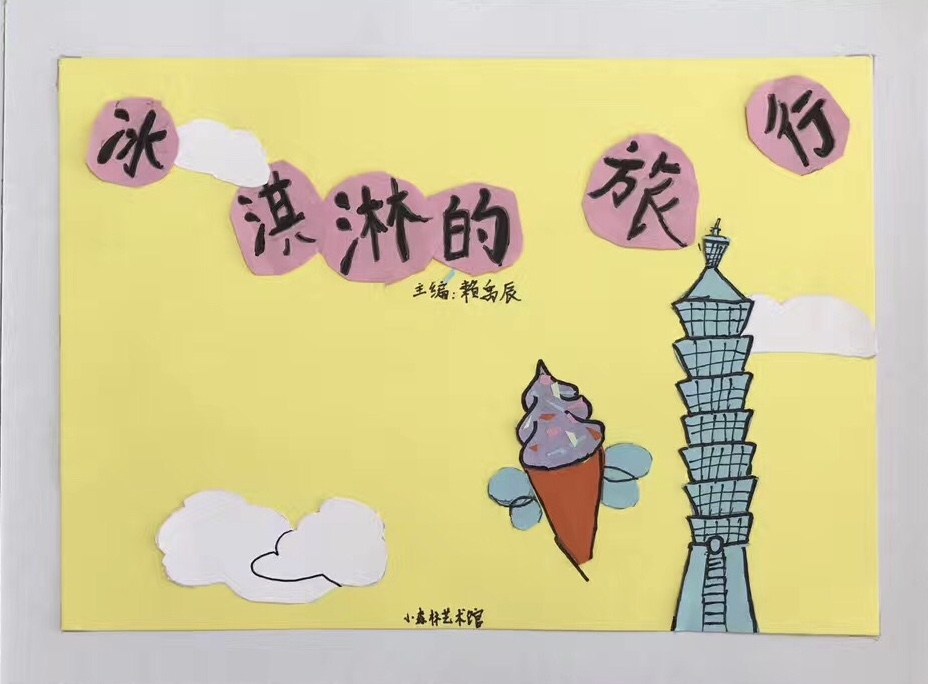 冰淇淋的旅行
主编:赖禹辰
小森林艺术馆